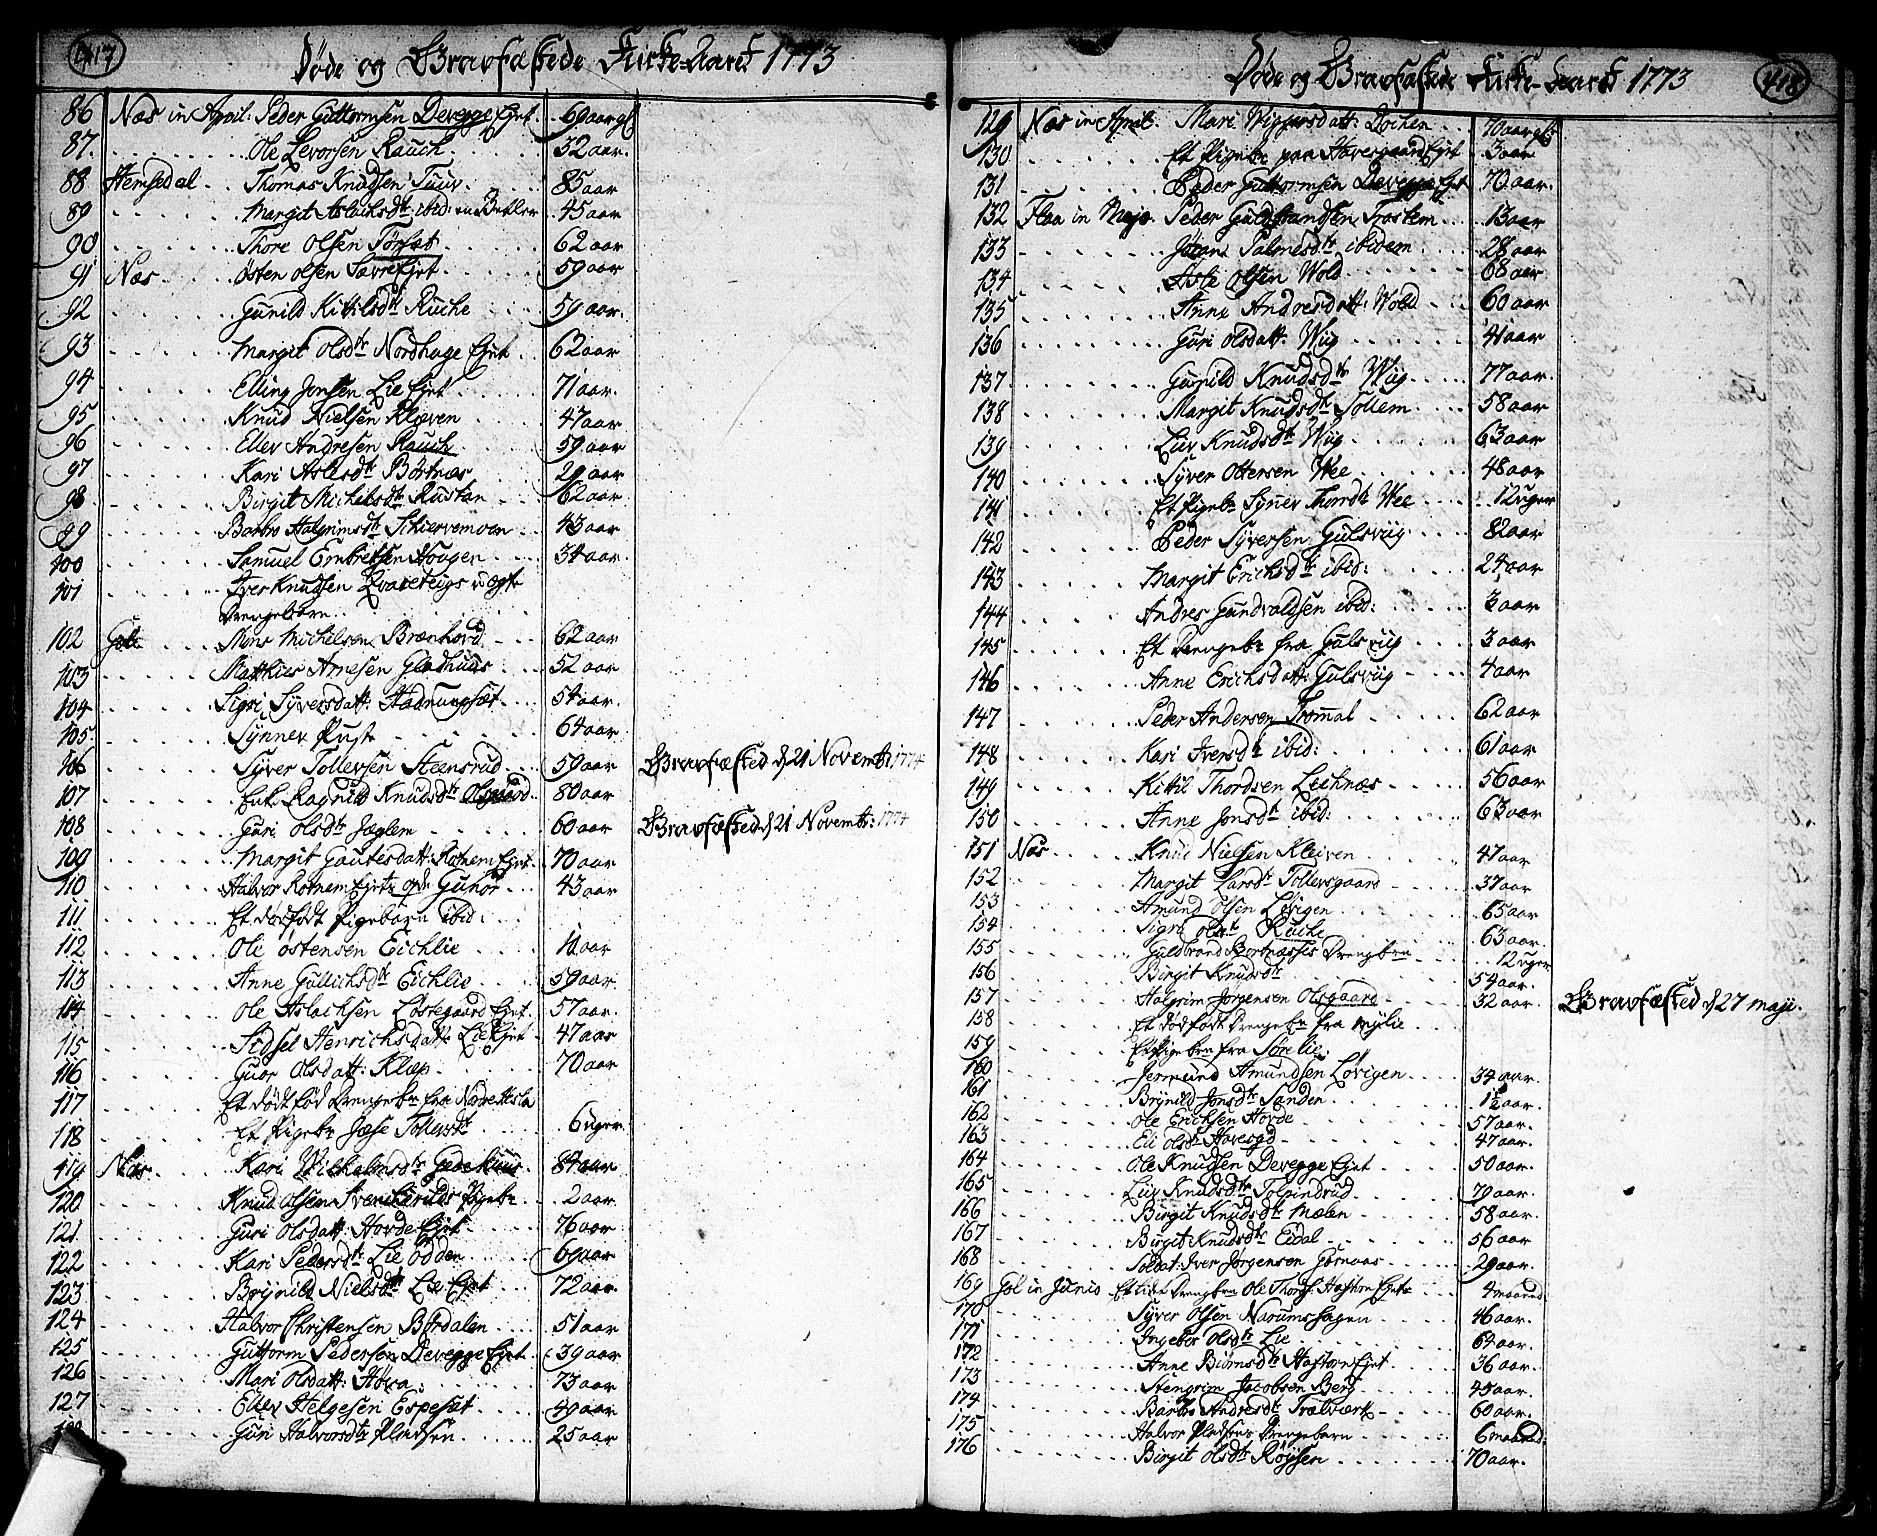 417
Døde og Gravfæstede Kirke-Aaret 1773
86 Næs in April: Peder Guttormsen Devegge Ejet. 69 aar gl
87. Ole Levorsen Rauch 52 aar.
88 Hemsedal Thomas Knudsen Tuuv. 85 aar
89 Margit Aslachsdtr ibid: en Betler 45 aar
90 Thore Olsen Torset 62 aar
91 Næs Østen Olsen Sævre Ejet 59 aar
92 Gunild Kitilsdtr Ruche 59 aar.
93 Margit Olsdtr Nordhage Ejet 62 aar
94 Elling Jonsen Lie Ejet 71 aar.
95 Knud Nielsen Kleven 47 aar
96 Ellev Andresen Rauch 59 aar
97 Kari Aslesdtr Børtnæs 29 aar
98 Birgit Michelsdtr Rustan 62 aar
99 Barbro Halgrimsdtr Schiervemoen 43 aar
100 Samuel Embretsen Hougen 34 aar.
101 Iver Knudsen Qvaeteigs
Drengebarn
102 Gol Mons Michelsen Brænhovd 62 aar
103 Matthias Arnesen Gladhuus 52 aar
104 Sigri Syversdatt: 54 aar.
105 Synnev Rust 64 aar
106 Syver Tollevsen Steensrud 59 aar Gravfæsted d 21 Novembr: 1774
107 Enk. Ragnild Knudsdtr Olsgaard 80 aar
108 Guri Olsdtr Jæglem 60 aar Gravfæsted d 21 Novembr: 1774
109 Margit Gautesdatt: Rotnem Ejet 70 aar
110 Halvor Rotnem Ejet Gunor 43 aar
111 Et dødfødt Pigebarn ibid:
112 Ole Østensen Eichlie 11 aar
113 Anne Gullichsdtr Eichlie 59 aar.
114 Ole Aslachsen Løstegaard Ejet. 57 aar.
115 Sidsel Henrichsdatt: Lie Ejet 47 aar
116 Guor Olsdatt: Klæp 70 aar
117 Et dødfød Drengebn fra Nørre Asla
118 Et Pigebn Jøse Tollevsdtr 6 uger.
119 Næs. Kari Wilhelmsdtr Gedehuus 84 aar
120 Knud Olsen Pigebn 2 aar
121 Guri Olsdatt: Hovde Ejet 76 aar
122 Kari Pedersdtr Lie Odden 69 aar
123 Brynild Nielsdtr Lie Ejet 72 aar.
124 Halvor Christensen Børdalen 51 aar
125 Guttorm Pedersen Devegge Ejet 39 aar
126 Mari Olsdatt: 73 aar
127 Ellev Helgesen Espeset 49 aar
Guri Halvorsdtr Pladsen 25 aar
418
Døde og Gravfæstede Kirke-Aaret 1773
129 Næs in April. Mari Wiggersdatt: Lochen 70 aar gl:
130 Et Pigebn paa Haversgaard Ejet 3 aar
131 Peder Guttormsen Devegge Ejet 70 aar.
132 Flaa in Majo. Peder Guldbrandsen Trostem 13 aar
133 Jøran Palmesdtr ibidem 28 aar
134 Asle Olsen Wold 68 aar
135 Anne Andresdatt: Wold 60 aar
136 Guri Olsdatt: Wiig 41 aar
137 Gunild Knudsdtr Wiig 77 aar.
138 Margit Knudsdtr Tollem 58 aar
139 Liv Knudsdtr Wiig 63 aar
140 Syver Ottersen Wee 48 aar
141 Et Pigebn Synev Thordtr Wee 12 uger
142 Peder Syversen Gulsviig 82 aar
143 Margit Erichsdtr ibid: 24 aar
144 Andres Gundvaldsen ibid: 3 aar
145 Et Drengebn fra Gulsviig 3 aar
146 Anne Erichsdatt: Gulsviig 4 aar
147 Peder Andersen Trommal 62 aar
148 Kari Iversdtr ibid: 61 aar
149 Kitil Thordsen Lechnæs 56 aar
150 Anne Jonsdtr ibid: 63 aar
151 Næs Knud Nielsen Kleiven 47 aar
152 Margit Larsdtr Tollevsgaard 37 aar
153 Amund Olsen Løvigen 65 aar
154 Sigri Olsdtr Ruche 63 aar.
155 Guldbrand Bortnæsses Drengebrn 12 uger
156 Birgit Knudsdtr 54 aar.
157 Halgrim Jørgensen Olsgaard 32 aar Gravfæsted d 27 maji.
158 Et dødfødt Drengebn fra Mylie
159 Et Pigebrn fra Sørelie
160 Jermund Amundsen Løvigen 34 aar.
161 Brynild Jonsdtr Sanden 1½ aar.
162 Ole Erichsen Hovde 57 aar.
163 Eli Olsdtr Havesgd 47 aar.
164 Ole Knudsen Devegge Ejet 50 aar.
165 Liv Knudsdtr Tolpindrud 79 aar.
166 Birgit Knudsdtr Mælen 58 aar.
167 Birgit Knudsdtr Eidal 56 aar
168 Soldat: Iver Jørgensen Gørnaas 29 aar.
169 Gol in Junio Et lidet Drengebrn Ole Thords: Haftorn Ejet 4 maaned
170 Syver Olsen Narumshagen 46 aar.
171 Ingebor Olsdtr Lie 64 aar.
172 Anne Biørnsdtr Haftorn Ejet 36 aar.
173 Stengrim Jacobsen Berg 45 aar.
174 Barbro Andresdtr Trælværk 60 aar.
175 Halvor Pladsens Drengebarn 6 maaned:
176 Birgit Olsdtr Røysen 70 aar.